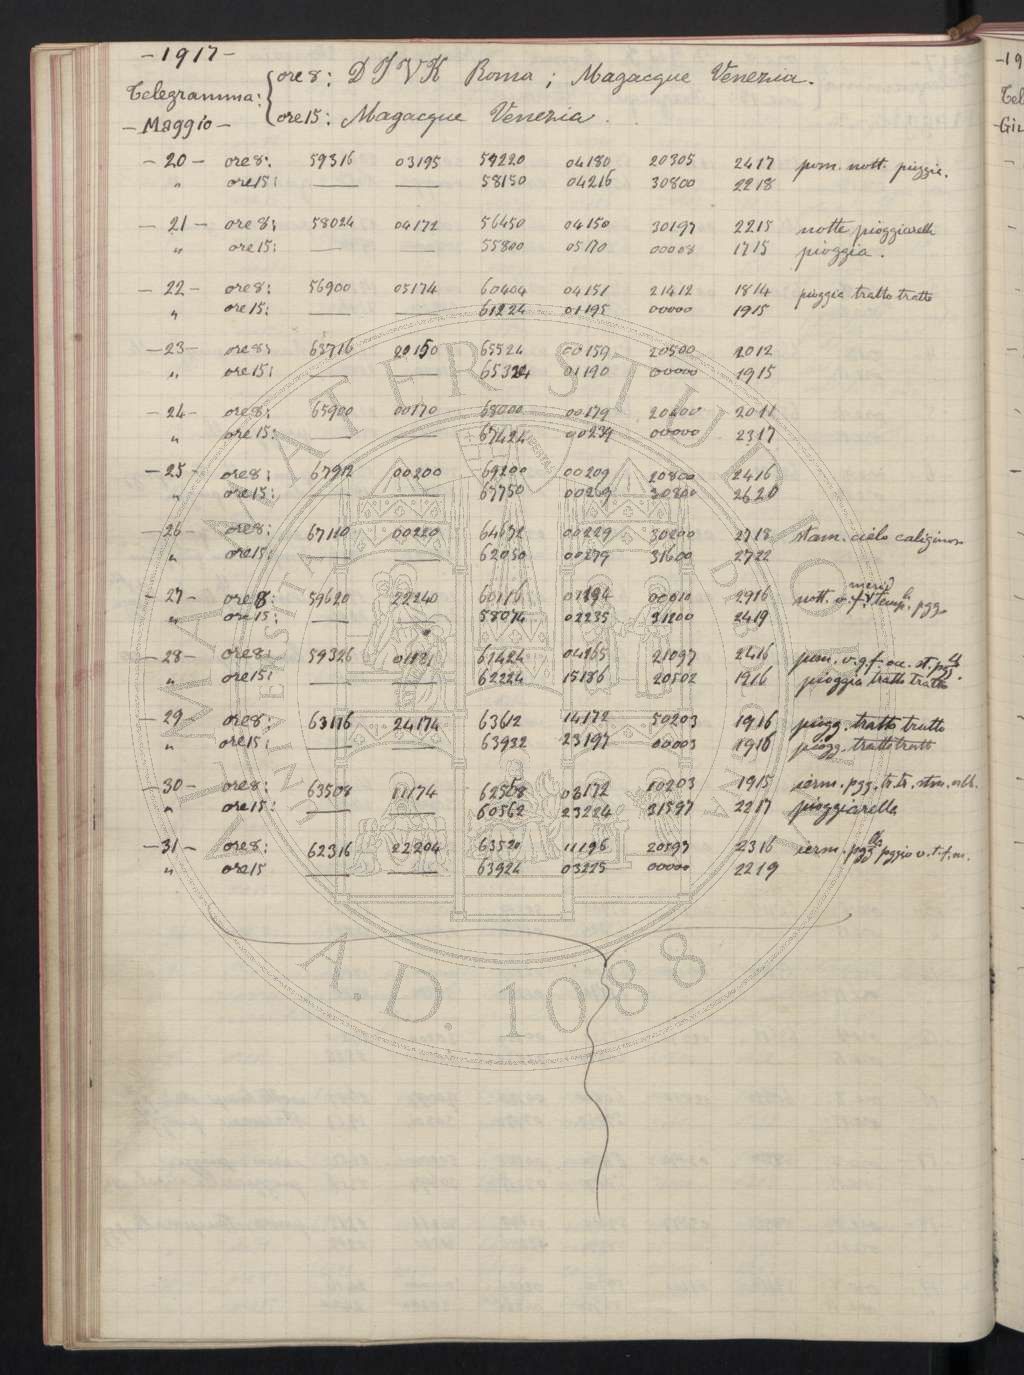 -1917-
Telegramma: ore 8: D I V K Roma; Magacque Venezia.
-Maggio- ore 15: Magacque Venezia.
-20- ore 8: 59316 03195 59220 04180 20305 2417 pom. nott. pioggia.
" ore 15: — — 58150 04216 30800 2218
-21- ore 8: 58024 04172 56450 04150 30197 2215 notte pioggiarella
" ore 15: — — 55800 05170 00008 1715 pioggia.
-22- ore 8: 56900 05174 60404 04151 21412 1814 pioggia tratto tratto
" ore 15: — — 61224 01195 00000 1915
-23- ore 8: 63716 20150 65524 00159 20500 2012
" ore 15: — — 65324 01190 00000 1915
-24- ore 8: 65900 00170 68000 00179 20400 2011
" ore 15: — — 67424 00239 00000 2317
-25- ore 8: 67912 00200 69200 00209 20800 2416
" ore 15: — — 67750 00269 30800 2620
-26- ore 8: 67110 00220 64672 00229 30200 2718 stam. cielo caliginoso
" ore 15: — — 62050 00279 31600 2722
-27- ore 8: 59620 22240 60116 01294 00010 2916 nott.
" ore 15: — — 58074 02235 31200 2419
-28- ore 8: 59326 61424 04165 21097 2416
" ore 15: — — 62224 15186 20502 1916 pioggia tratto tratto
-29- ore 8: 63116 24174 63612 14172 50203 1916 piogg. tratto tratto
" ore 15: — — 63932 23197 00003 1916 piogg. tratto tratto
-30- ore 8: 63508 11174 62508 03172 10203 1915 ierm. pgg. tr. tr.
" ore 15: — — 60562 23224 31597 2217 pioggiarella
-31- ore 8: 62316 22204 63520 11196 20597 2316 ierm.
" ore 15 — — 63924 03225 00000 2219
ALMA MATER STUDIORUM
UNIVERSITAS BONONIENSIS
A.D. 1088
-19
Tel
-Giu